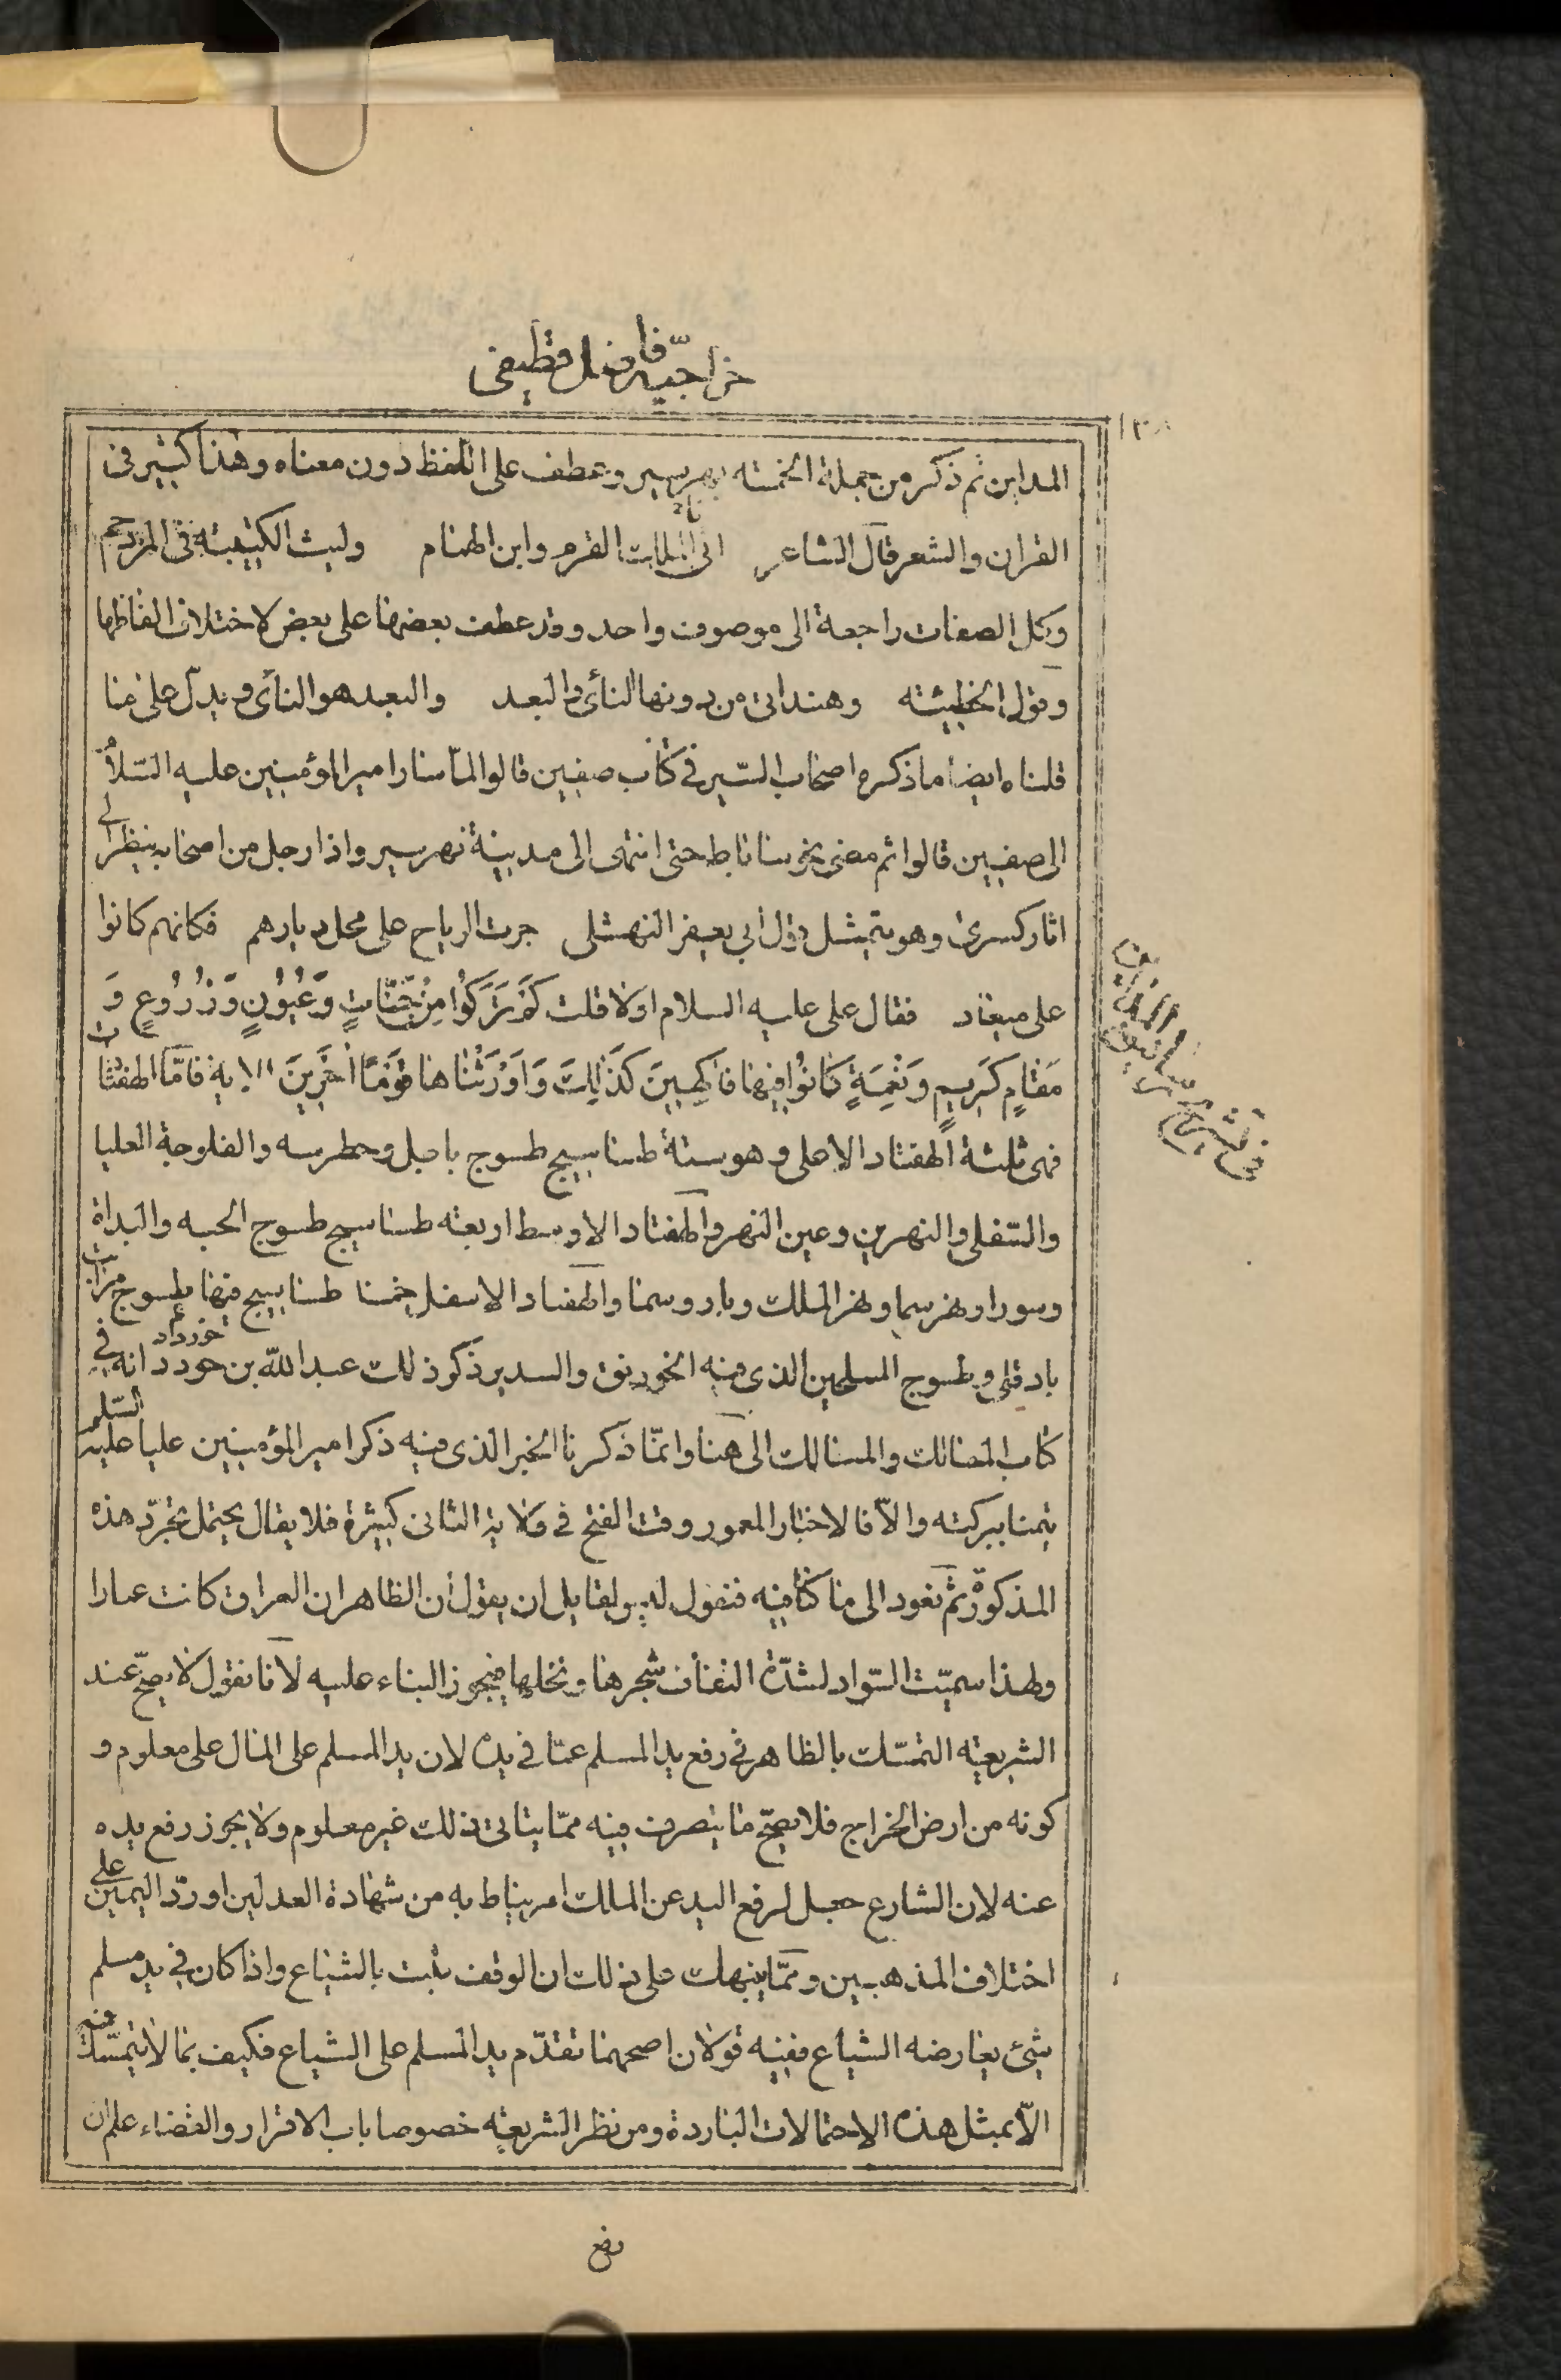 خراجيّه فاضل قطيفى
١٣٨
المداين ثم ذكر من جملة الخمسة بهرسير وعطف على اللفظ دون معناه وهذا كثير فى
القران والشعر قال الشاعر الى الملك القرم وابن الهمام وليث الكتيبة فى المزدحم
وكل الصفات راجعة الى موصوف واحد وقد عطف بعضها على بعض لاختلاف الفاظها
وقول الحطيئة وهند اتى من دونها النأى والبعد والبعد هو النأى ويدلّ على ما
قلناه ايضا ما ذكره اصحاب السّير فى كتاب صفين قالوا لمّا سار امير المؤمنين عليه السّلام
الى صفين قالوا ثم مضى نحو ساباط حتى انتهى الى مدينة نهرسير واذا رجل من اصحابه ينظر الى
اثار كسرى وهو يتمثل بقول ابى يعفر النهشلى جرت الرياح على محل ديارهم فكانهم كانوا
على ميعاد فقال على عليه السلام اولا قلت كَمْ تَرَكُوا مِنْ جَنَّاتٍ وَعُيُونٍ وَزُرُوعٍ وَ
مَقَامٍ كَرِيمٍ وَنَعْمَةٍ كَانُوا فِيهَا فَاكِهِينَ كَذَلِكَ وَاَوْرَثْنَاهَا قَوْمًا اٰخَرِينَ الاية فامّا الهفتادات
فهى ثلثة الهفتاد الاعلى وهو ستة طساسيج طسوج بابل وحطرسه والفلوجة العليا
والسّفلى والنهرين وعين النهر والهفتاد الاوسط اربعة طساسيج طسوج الحبه والبداة
وسورا ونهرسيما ونهر الملك وباروسما والهفتاد الاسفل خمسا طساسيج منها طسوج فرات
بادقلى وطسوج المسلحين الذى فيه الخورنق والسدير ذكر ذلك عبد الله بن خوردادانه فى
كتاب المضالك والمسالك الى هنا وانّما ذكرنا الخبر الذى فيه ذكر امير المؤمنين عليا عليه السّلم
تيمنا ببركته والّا فالاختبار المعمور وقت الفتح فى ولاية الثانى كبيرة فلا يقال يحتمل تجرّد هذه
المذكورة ثم نعود الى ما كنّا فيه فنقول ليس لقايل ان يقول ان الظاهر ان العراق كانت عمارا
ولهذا سميّت السّواد لشدّة التفاف شجرها ونخلها فيجوز البناء عليه لانا نقول لا يصحّ عند
الشريعة التمسّك بالظاهر فى رفع يد المسلم عمّا فى يده لان يد المسلم على المال على معلوم و
كونه من ارض الخراج فلا يصحّ ما يتصرف فيه ممّا ينافى ذلك غير معلوم ولا يجوز رفع يده
عنه لان الشارع جعل لرفع اليد عن الملك امر يناط به من شهادة العدلين او ردّ اليمين على
اختلاف المذهبين وممّا ينبهك على ذلك ان الوقف يثبت بالشياع واذا كان فى يد مسلم
شئ يعارضه الشياع ففيه قولان اصحهما تقدّم يد المسلم على الشياع فكيف بما لا يتمسّك فيه
الّا بمثل هذه الاحتمالات الباردة ومن نظر الشريعة خصوصا باب الاقرار والقضاء علم ان